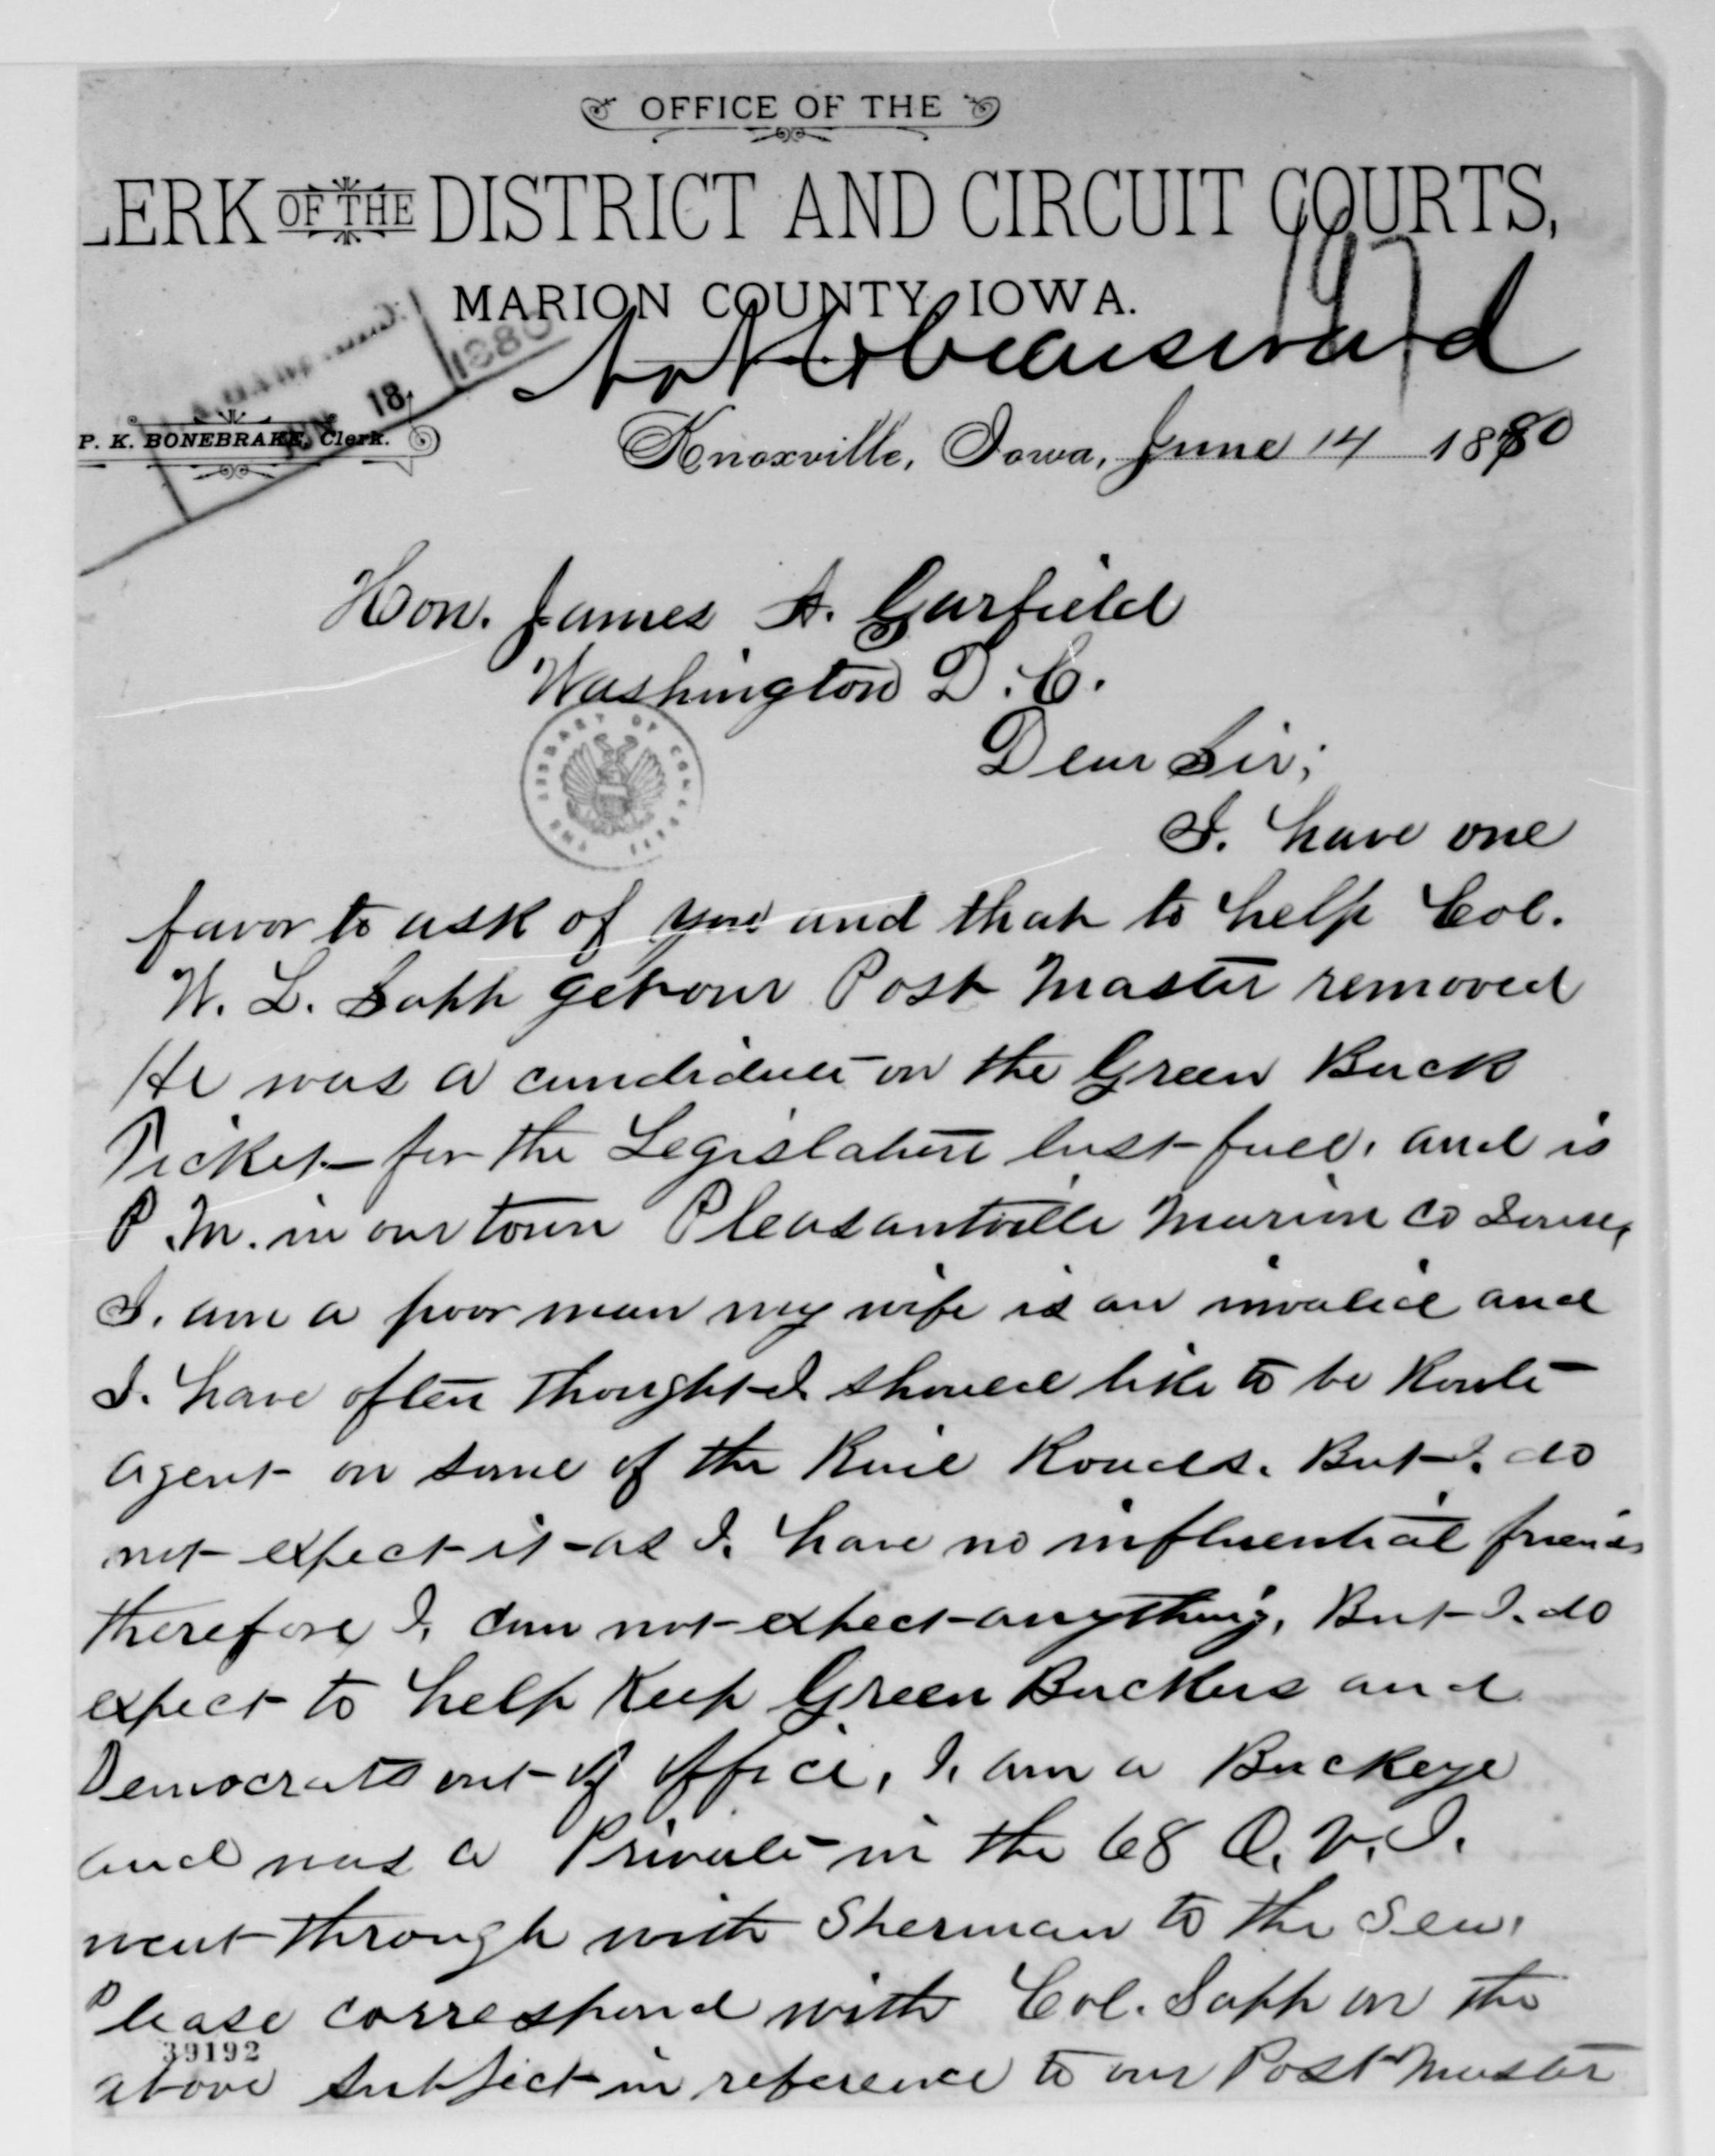 OFFICE OF THE
LERK OF THE DISTRICT AND CIRCUIT COURTS,
197
MARION COUNTY, IOWA.
Not to be answered
18 1880
P. K. BONEBRAKE, Clerk.
Knoxville, Iowa, June 14 1880
Hon. James A. Garfield
Washington D.C.
Dear Sir;
THE LIBRARY OF CONGRESS
I. have one
favor to ask of you and that to help Col.
W. L. Sapp get our Post Master removed
He was a candidate on the Green Back
Ticket for the Legislature last fall. and is
P.M. in our town Pleasantville Marion Co Iowa,
I. am a poor man my wife is an invalid and
I. have often thought I should like to be Route
agent on some of the Rail Roads. But I. do
not expect it as I. have no influential friends
therefore I. can not expect anything. But I. do
expect to help Keep Green Backers and
Democrats out of office, I. am a Buckeye
and was a Private in the 68 O.V.I.
went through with Sherman to the Sea.
Please correspond with Col. Sapp on the
39192
above subject in reference to our Post Master